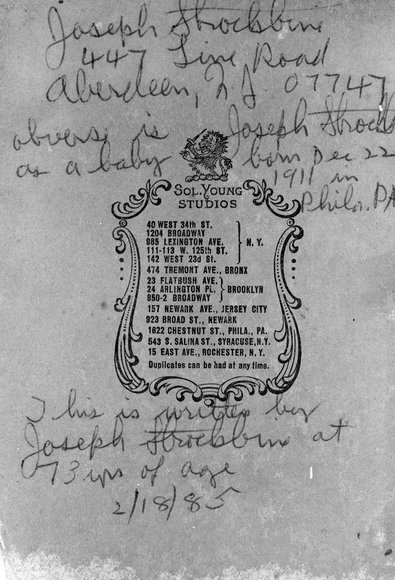 Joseph Strockbine
447 Line Road
Aberdeen, NJ 07747
obverse is Joseph Strockb
as a baby born Dec 22
1911 in
Phila. PA
SOL. YOUNG
STUDIOS
40 WEST 34th ST.
1204 BROADWAY
985 LEXINGTON AVE.
111-113 W. 125th ST.
142 WEST 23d St.
N. Y.
474 TREMONT AVE., BRONX
23 FLATBUSH AVE.
24 ARLINGTON PL.
850-2 BROADWAY
BROOKLYN
157 NEWARK AVE., JERSEY CITY
923 BROAD ST., NEWARK
1622 CHESTNUT ST., PHILA., PA.
543 S. SALINA ST., SYRACUSE, N.Y.
15 EAST AVE., ROCHESTER, N. Y.
Duplicates can be had at any time.
This is written by
Joseph Strockbine at
73 yrs of age
2/18/85